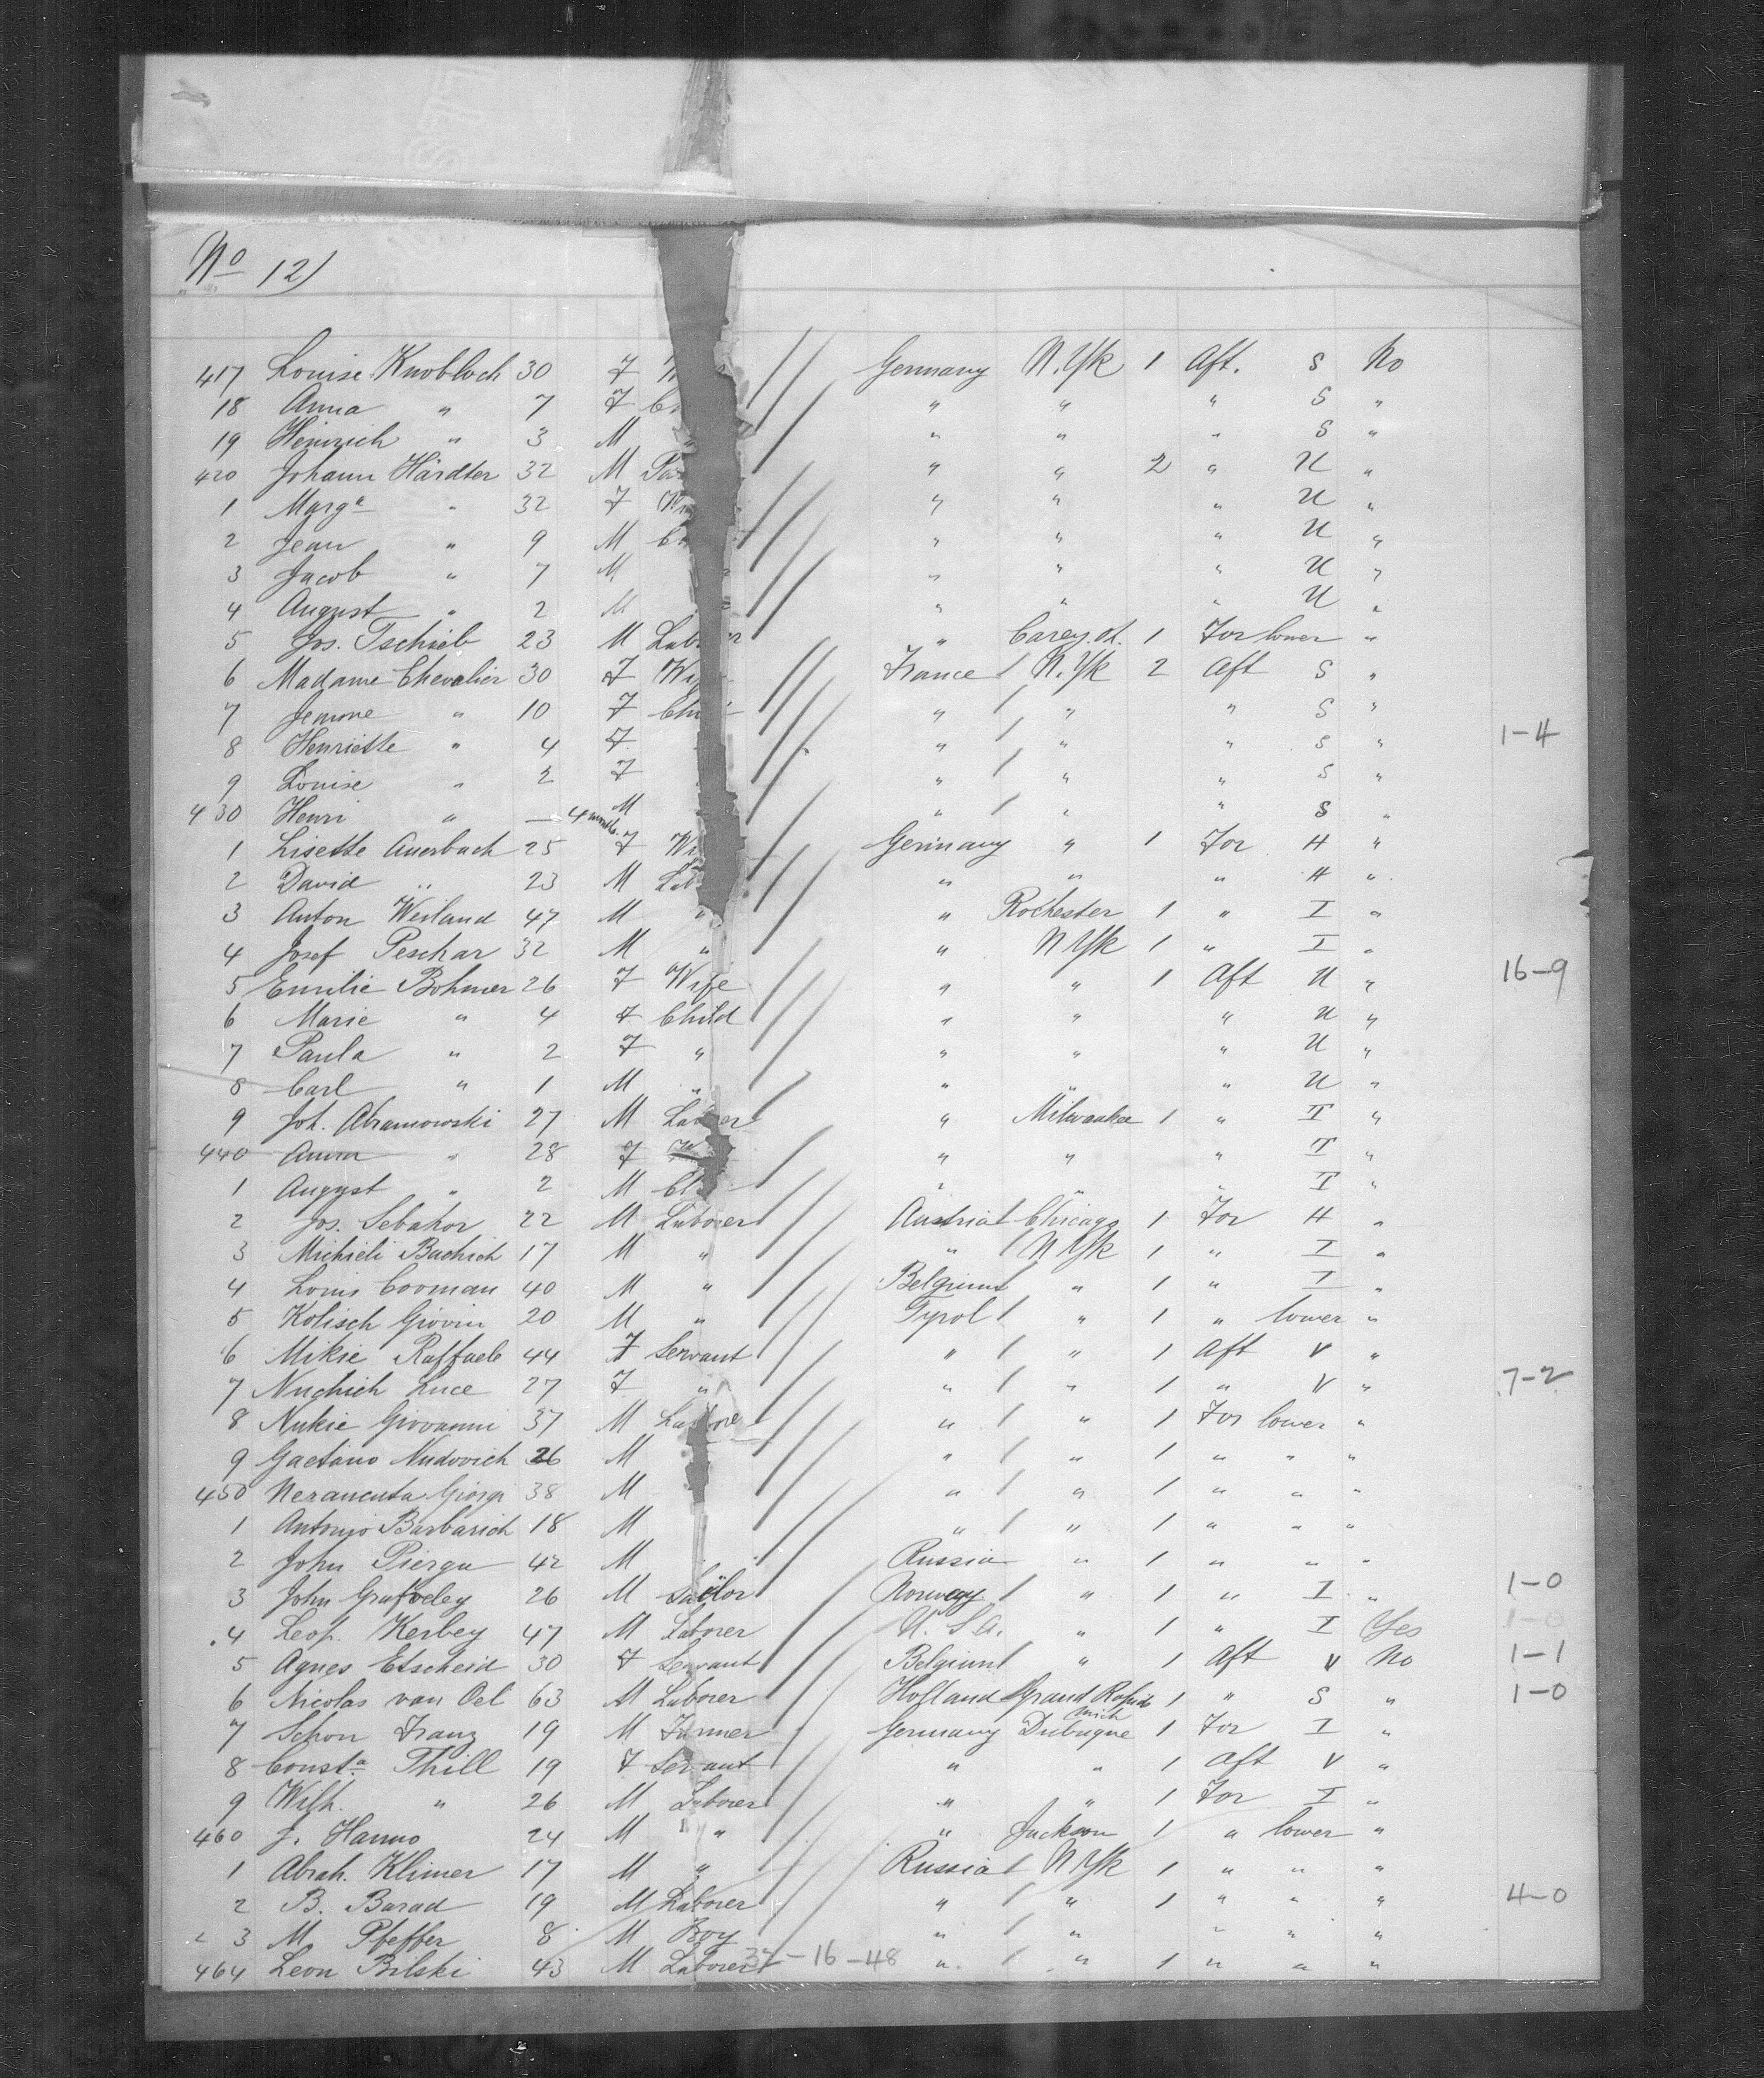 No 12)
417 Louise Knobloch 30 F Germany N.Yk 1 Aft. S No
18 Anna " 7 F " " " S "
19 Heinrich " 3 M " " " S "
420 Johann Härdter 32 M " " 2 " U "
1 Marga " 32 F " " " U "
2 Jean " 9 M " " " U "
3 Jacob " 7 M " " " U "
4 August " 2 M " " " U "
5 Jos. Tschieb 23 M " 1 For lower "
6 Madame Chevalier 30 F France N.Yk 2 Aft S "
7 " 10 F " " " S "
8 Henriette " 4 F " " " S " 1-4
9 Louise " 2 F " " " S "
430 Henri " — 4 months. M " " " S "
1 Lisette Auerbach 25 F Germany " 1 For H "
2 David " 23 M " " " H "
3 Anton Weiland 47 M " " Rochester 1 " I "
4 Josef Peschar 32 M " " N Yk 1 " I "
5 Emilie Bohmer 26 F Wife " " 1 Aft U " 16-9
6 Marie " 4 F Child " " " U "
7 Paula " 2 F " " " " U "
8 Carl " 1 M " " " " U "
9 Joh. Abramowski 27 M " Milwaukee 1 " I "
440 Anna " 28 F " " " I "
1 August " 2 M " " " I "
2 Jos. Sebahor 22 M Laborer Austria Chicago 1 For H "
3 Michieli Bachich 17 M " " N Yk 1 " I "
4 Louis Cooman 40 M " Belgium " 1 " I "
5 Kolisch Giovin 20 M " Tyrol " 1 " lower "
6 Mikic Raffaele 44 F Servant " " 1 Aft V "
7 Luce 27 F " " " 1 " V " 7-2
8 Nukic Giovanni 37 M " " 1 For lower "
9 Gaetano Nudovich 26 M " " 1 " " "
450 Giorgi 38 M " " 1 " " "
1 Antonio Barbarich 18 M " " 1 " " "
2 John Piergu 42 M Russia " 1 " " "
3 John 26 M Sailor Norway " 1 " I " 1-0
4 Leop. Kerbey 47 M Laborer U.S.A. " 1 " I Yes 1-0
5 Agnes Etscheid 30 F Servant Belgium " 1 Aft V No 1-1
6 Nicolas van Oel 63 M Laborer Holland Grand Rapids Mich 1 " S " 1-0
7 Schon Franz 19 M Farmer Germany Dubuque 1 For I "
8 Consta Thill 19 F Servant " " 1 Aft V "
9 Wilh. " 26 M Laborer " " 1 For I "
460 J. Hanno 24 M " " Jackson 1 " lower "
1 Abrah. Klimer 17 M " Russia N Yk 1 " " "
2 B. Barad 19 M Laborer " " 1 " " " 4-0
3 M. Pfeffer 8 M Boy " " " " "
464 Leon Bilski 43 M Laborer -16-48 " " 1 " " "